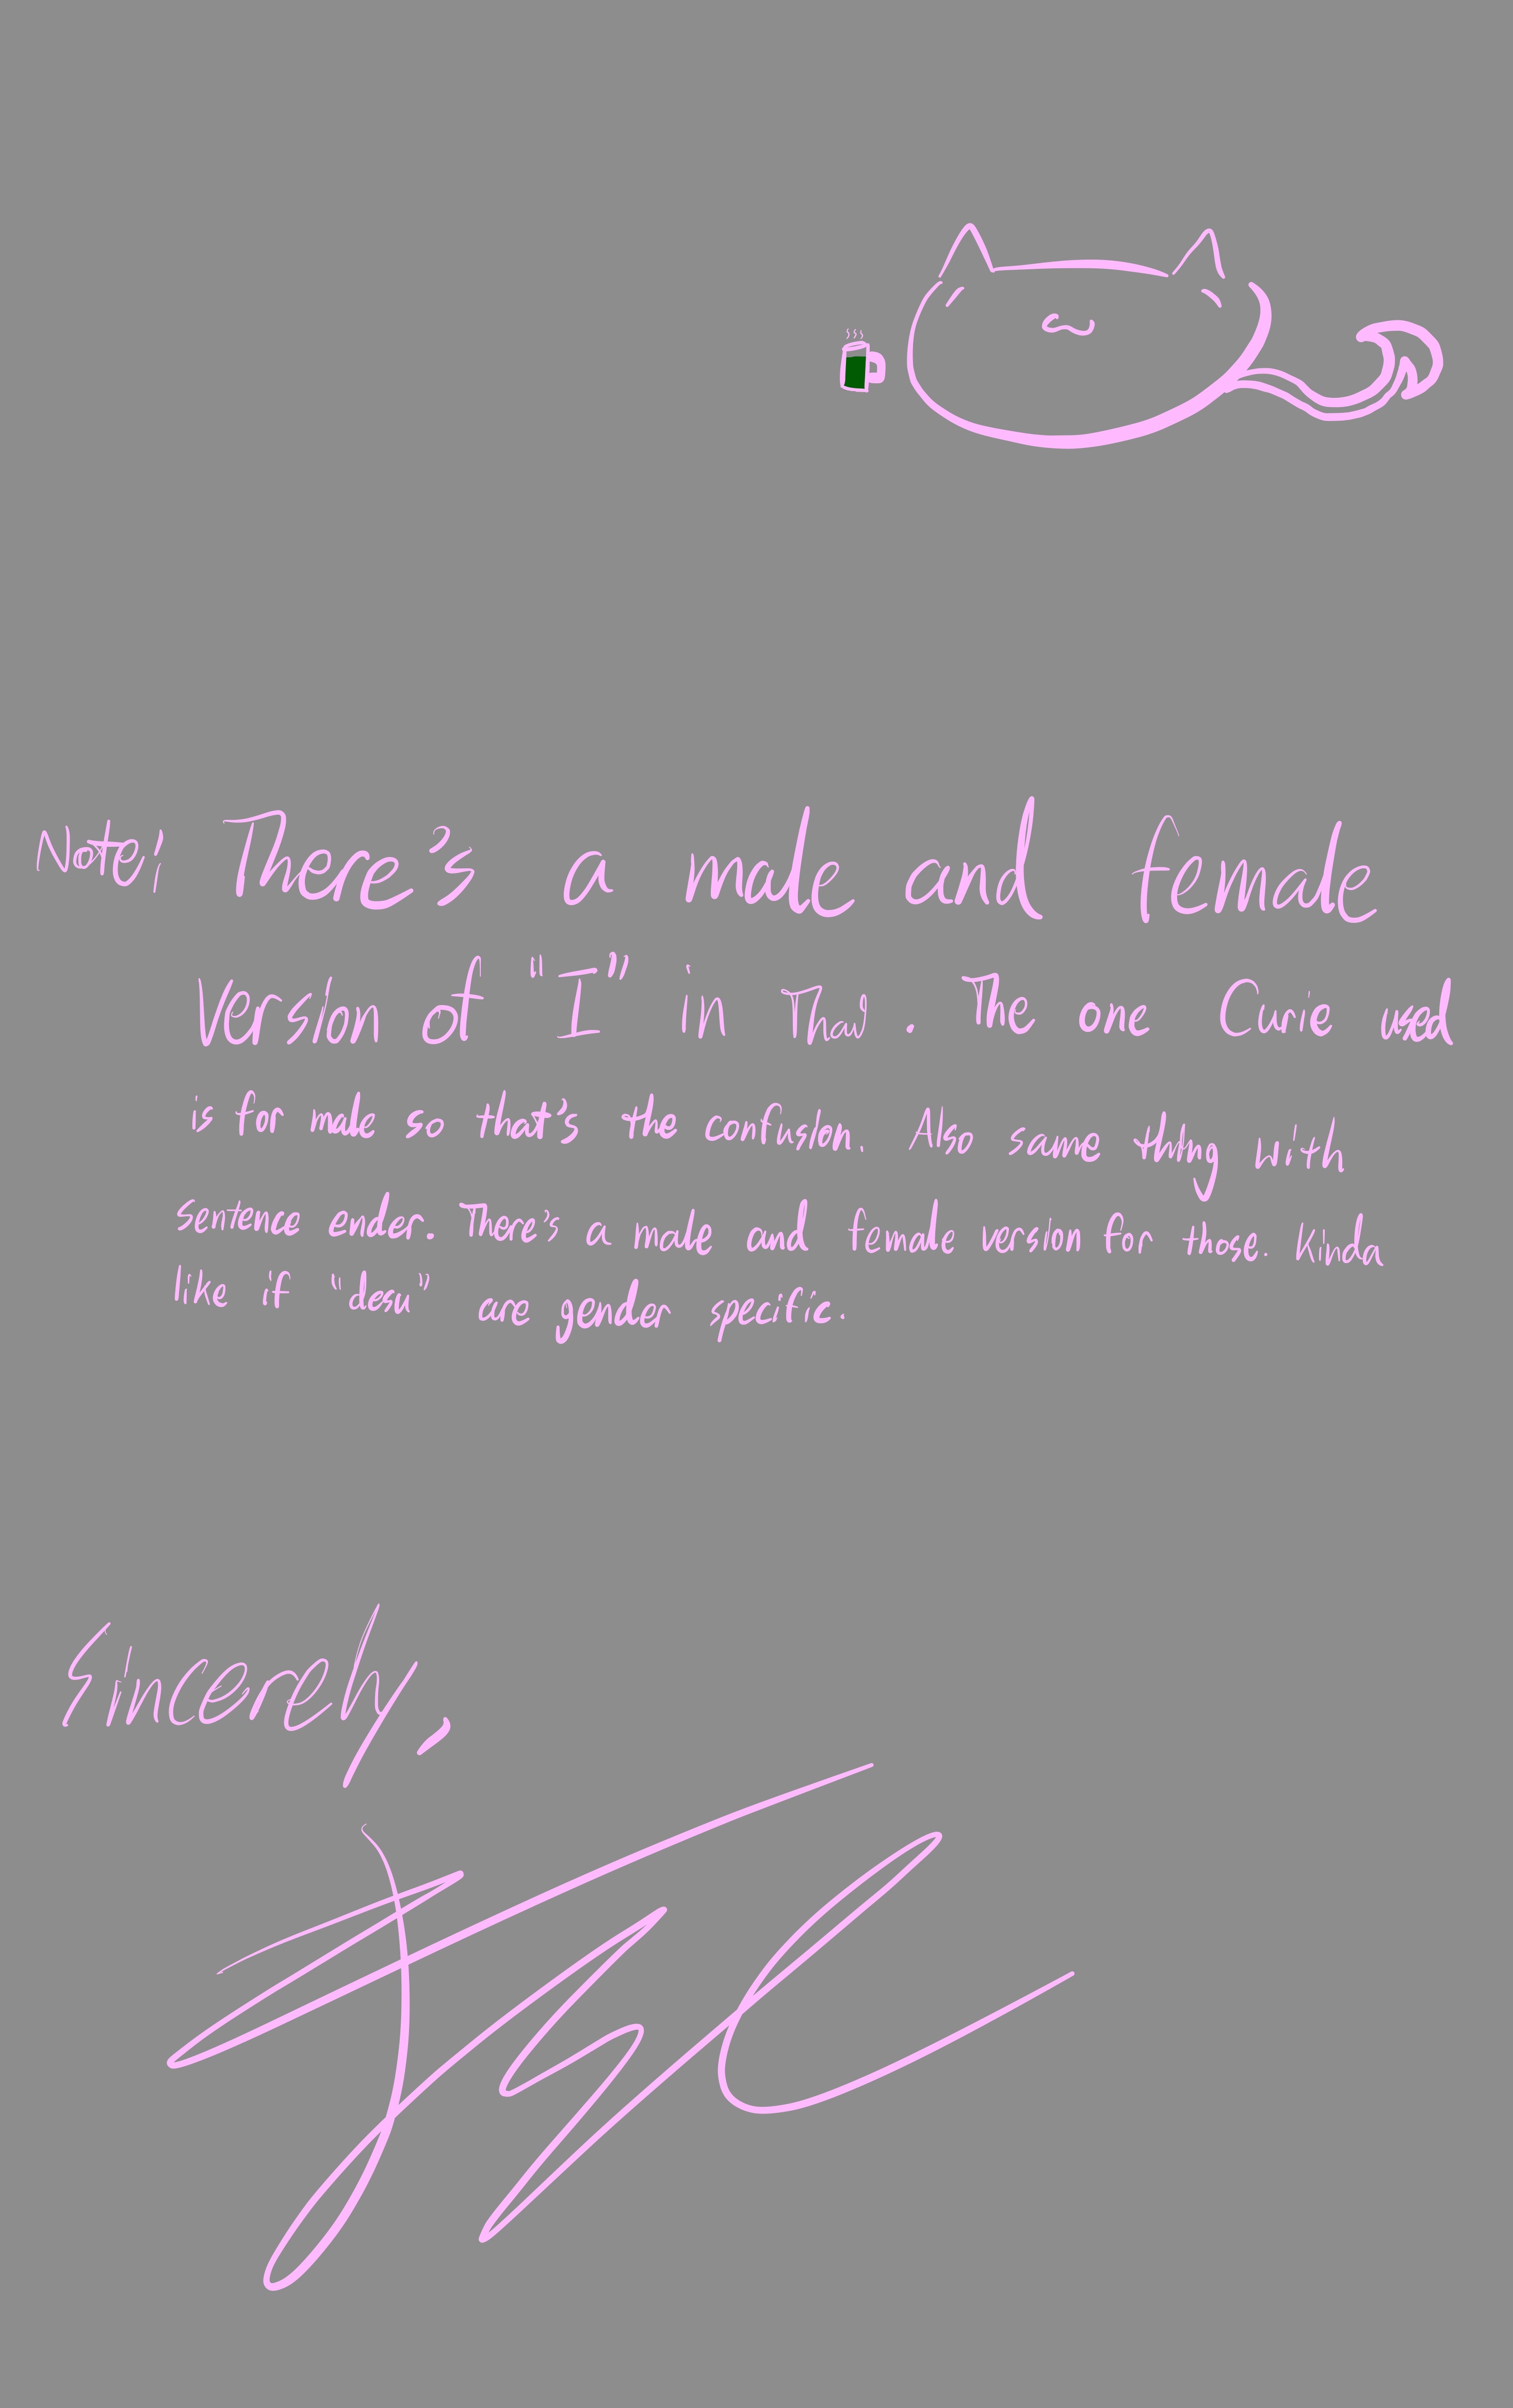 Note: There's a male and female
version of "I" in Thai. The one Carie used
is for male so that's the confusion. Also same thing with
sentence ender. There's a male and female version for those. Kinda
like if "desu" are gender specific.
Sincerely,